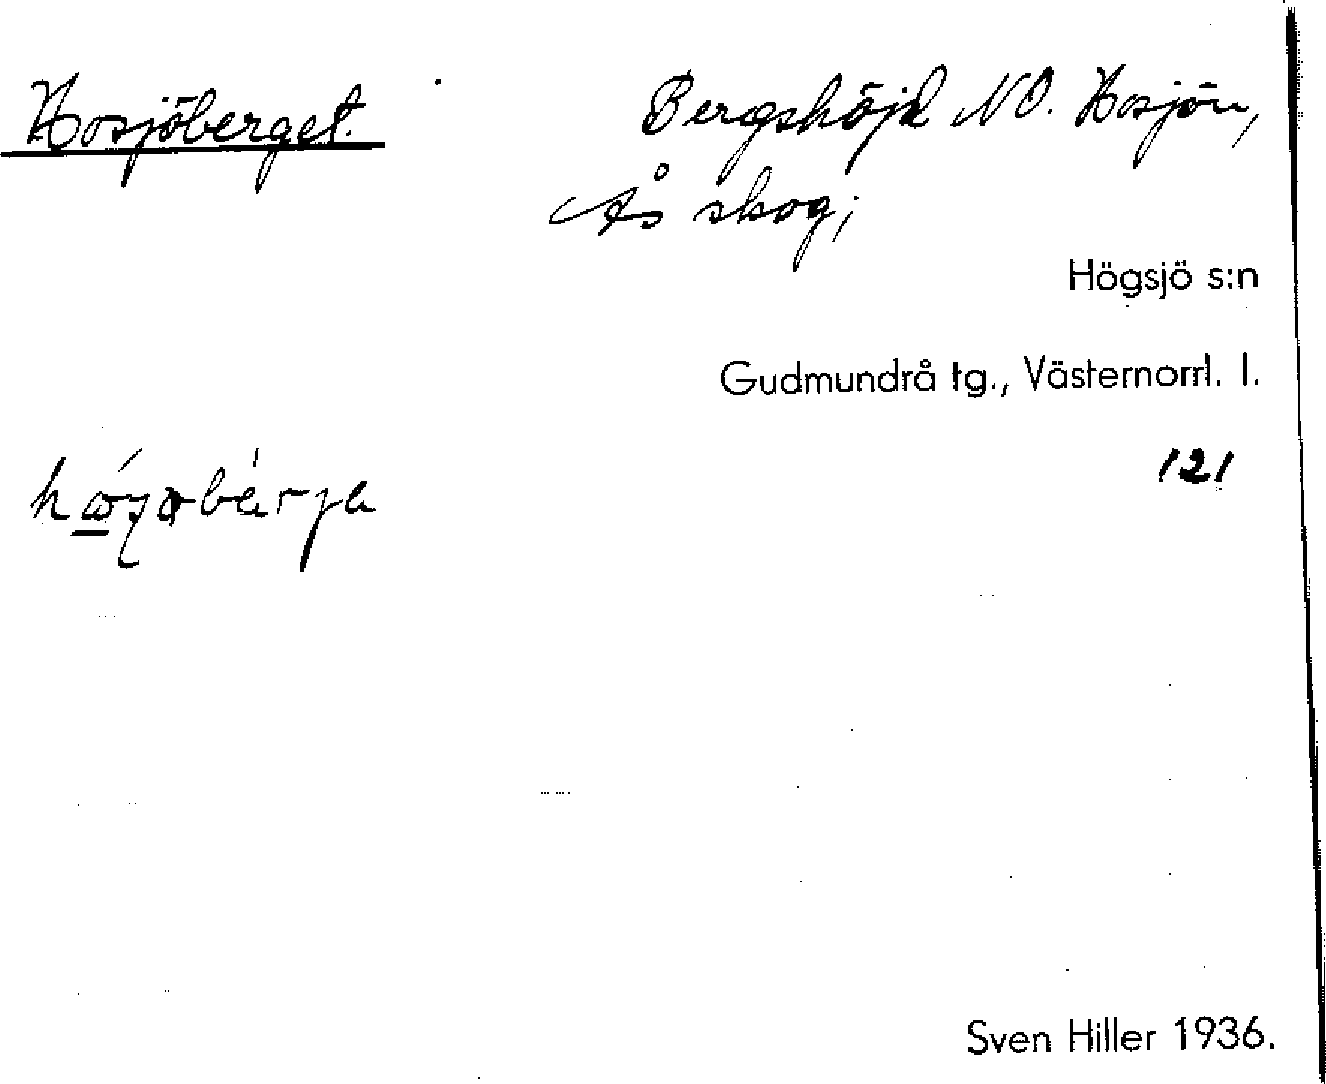 Hosjöberget.
Bergshöjd NO. Hosjön,
Ås skog;
Högsjö s:n
Gudmundrå tg., Västernorrl. l.
121
Sven Hiller 1936.